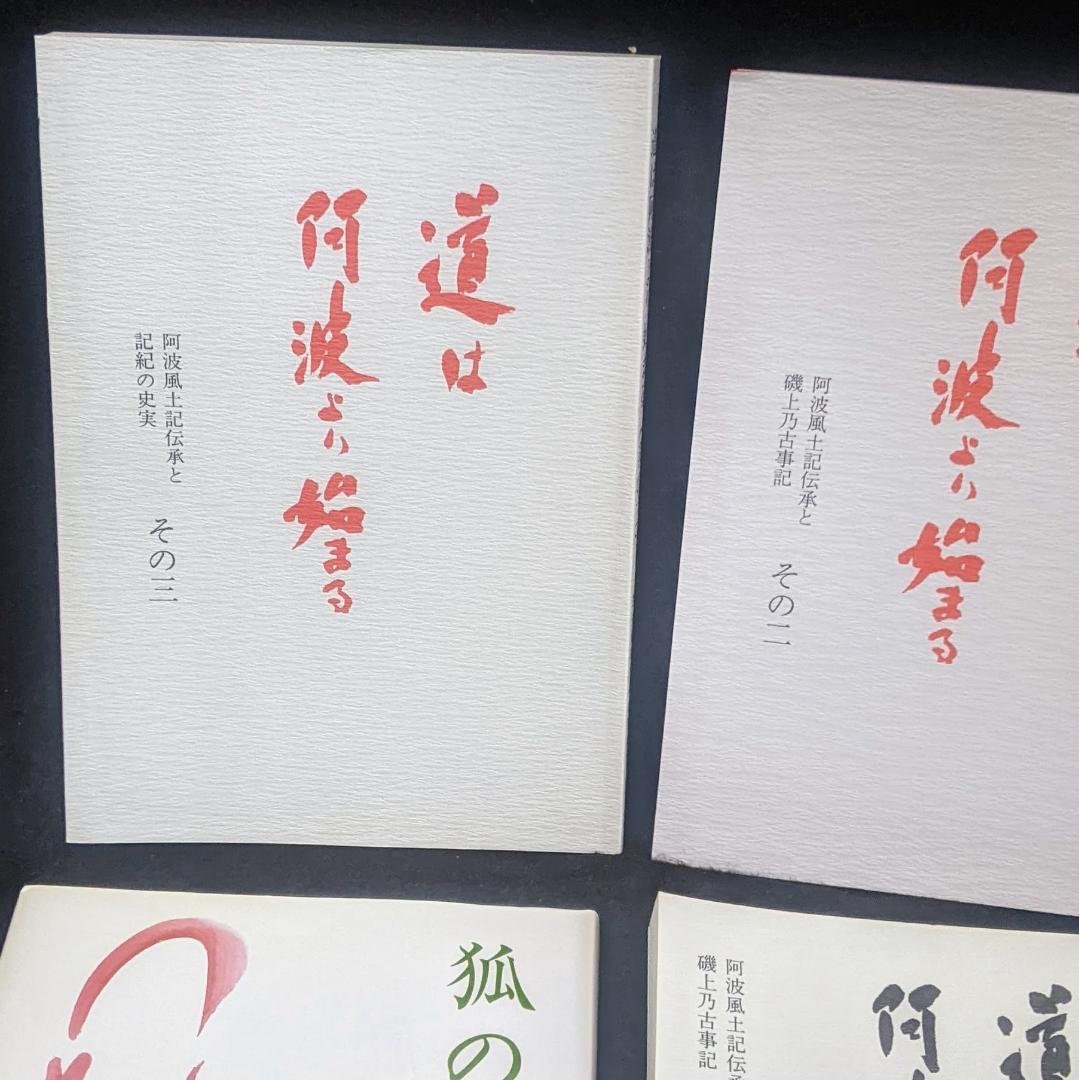 道は
阿波より始まる
阿波風土記伝承と
記紀の史実
その三
阿波より始まる
阿波風土記伝承と
磯上乃古事記
その二
狐の
道
阿
阿波風土記伝承
磯上乃古事記